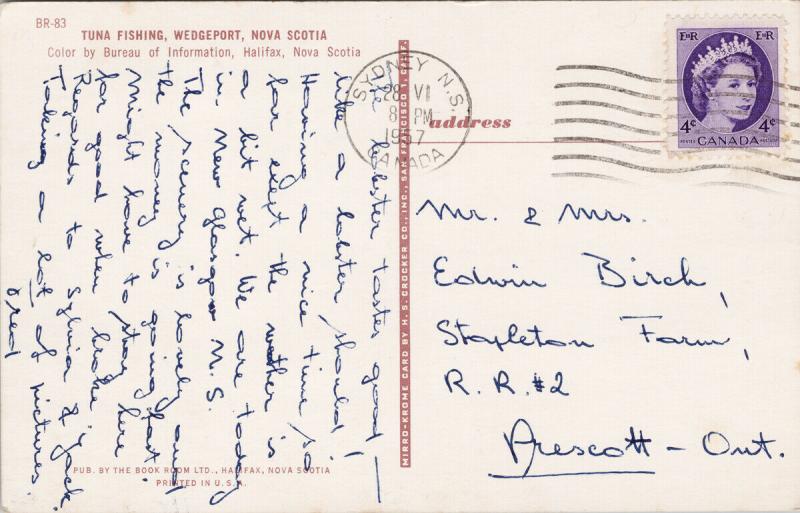 BR-83
TUNA FISHING, WEDGEPORT, NOVA SCOTIA
Color by Bureau of Information, Halifax, Nova Scotia
The lobster tastes good —
like a lobster should!
Having a nice time so
far exept the weather is
a bit wet. We are today
in New Glasgow N.S.
The scenery is lovely and
the money is going fast
might have to stay here
for good when broke
Regards to Sylvia & Jack.
Taking a lot of pictures.
Fred
PUB. BY THE BOOK ROOM LTD., HALIFAX, NOVA SCOTIA
PRINTED IN U.S.A.
MIRRO-KROME CARD BY H.S. CROCKER CO., INC., SAN FRANCISCO 1, CALIF.
SYDNEY N.S.
28 VI
8 PM
1957
CANADA
address
EIIR EIIR
4¢ 4¢
POSTES CANADA POSTAGE
Mr. & Mrs.
Edwin Birch,
Stapleton Farm,
R.R.#2
Prescott - Ont.